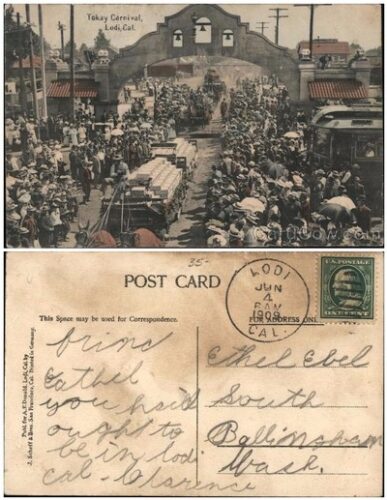 Tokay Carnival,
Lodi, Cal.
CardCow.com
35-
POST CARD
This Space may be used for Correspondence.
FOR ADDRESS ONL
LODI
JUN
4
8 AM
1909
CAL.
U.S. POSTAGE
ONE CENT
Publ. for A. F. Donald, Lodi, Cal. by
J. Scheff & Bros. San Francisco, Cal. Printed in Germany.
Ethel
you
ought to
be in lodi
cal - Clarence
Ethel Ebel
South
Bellingham
Wash.